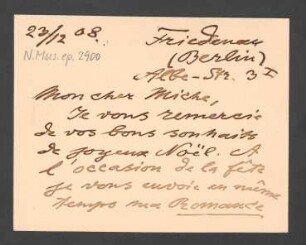 23/12 08.
N.Mus.ep. 2900
Friedenau
(Berlin)
Albe-Str. 3 I
Mon cher Miche,
Je vous remercie
de vos bons souhaits
de joyeux Noël. A
l'occasion de la fête
je vous envoie en même
temps ma Romance